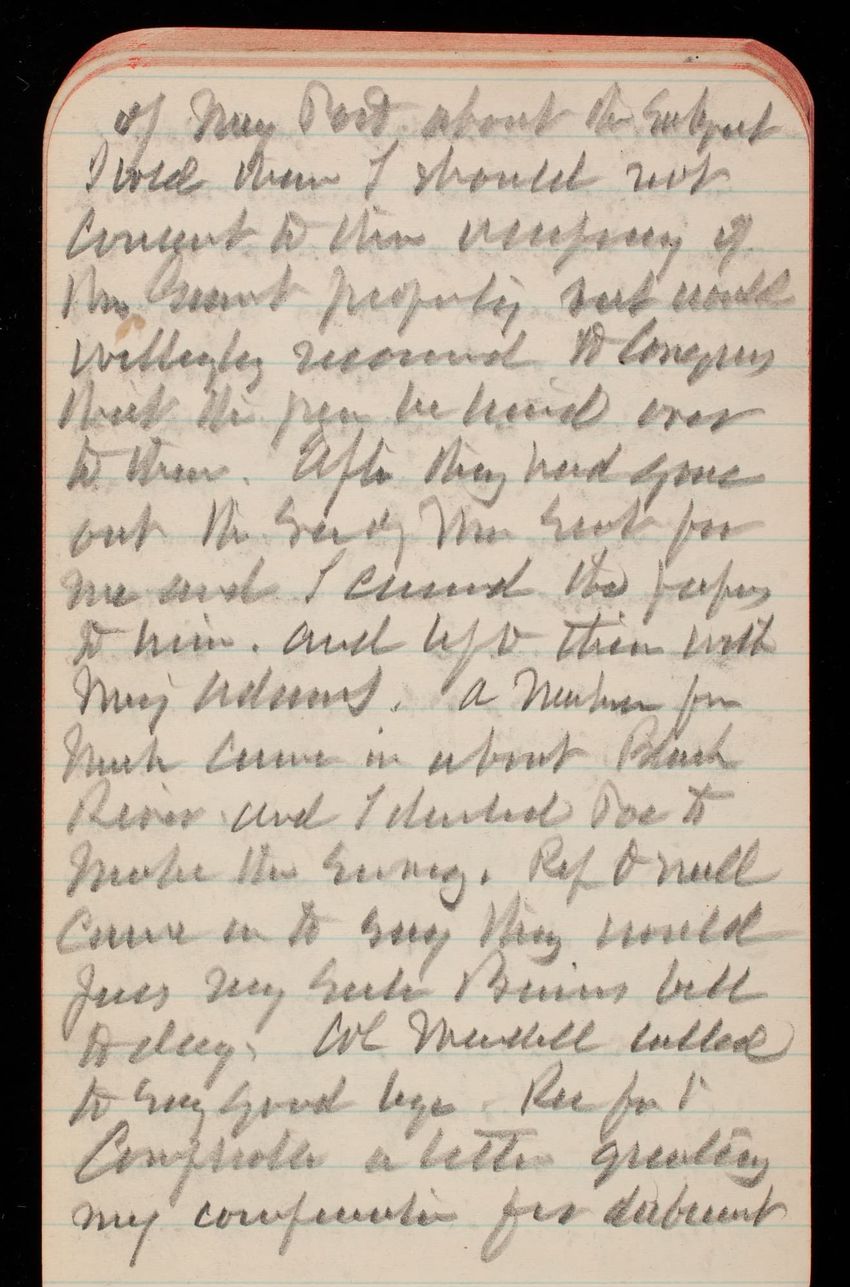 of May Post about the Subject
I told them I should not
Consent to their occupancy of
the Govmt property but would
willingly recomend to Congress
that the be turned over
to them. After they had gone
out the Secy Sent for
me and I carried the papers
to him. and left them with
Maj Adams. A Member from
Mich Came in about Black
River and I Poe to
Make the Survey. Rep O'Neill
Came in to Say they would
Pass my bill
today. Col Mendell called
to Say good bye. Rec from
Comptroller a letter
my for